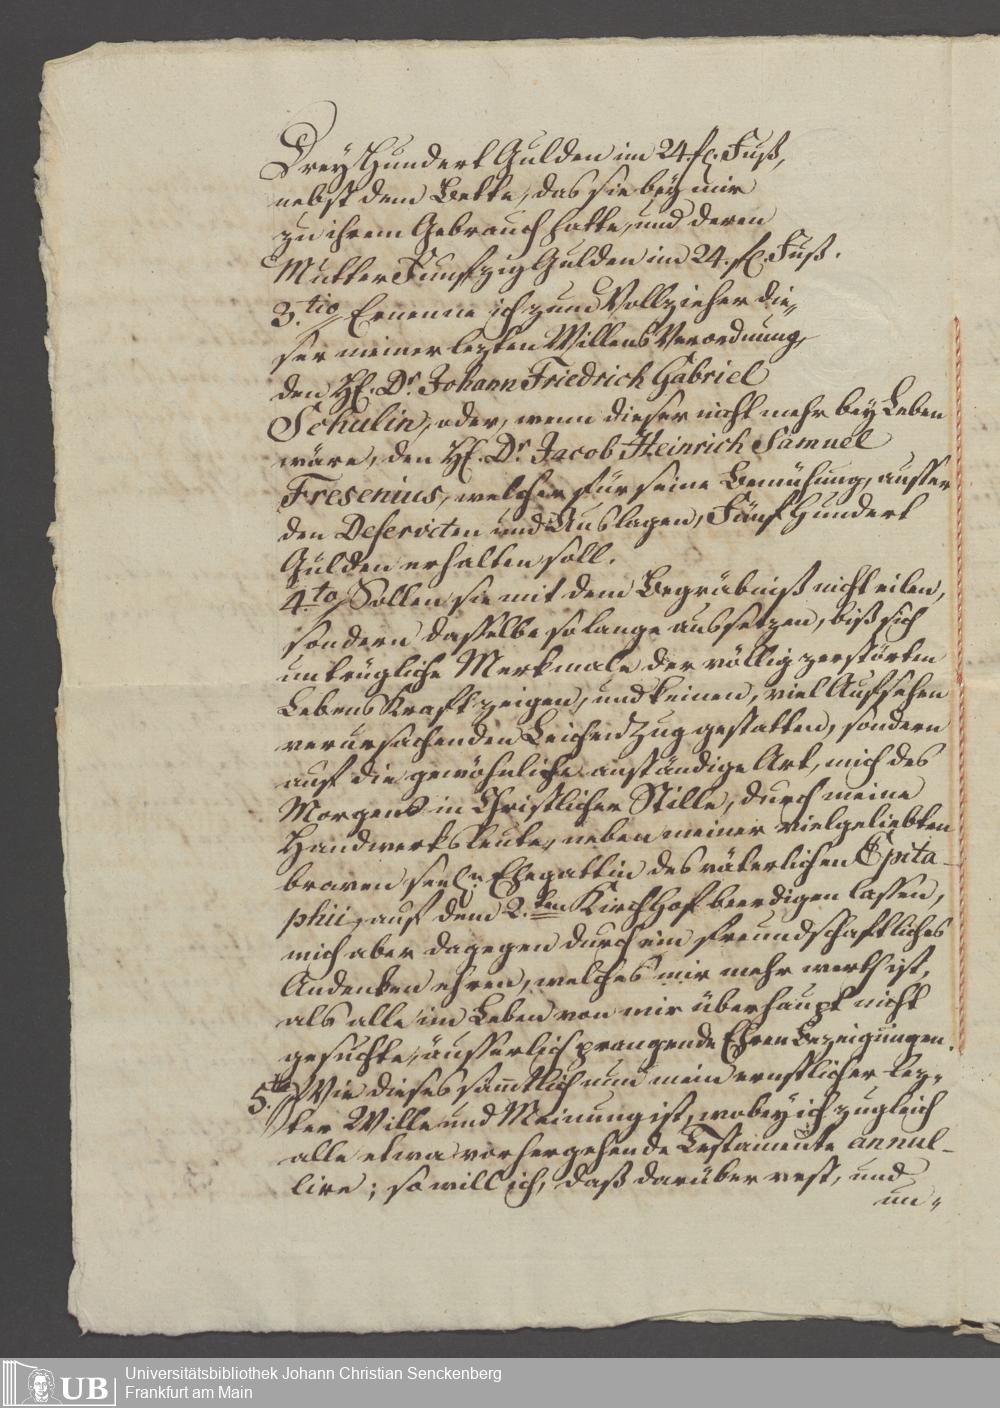 Drey Hundert Gulden im 24. fl. Fuß,
nebst dem Bette, das sie bey mir
zu ihrem Gebrauch hatte, und deren
Mutter Funfzig Gulden im 24. fl. Fuß.
3.tio Ernenne ich zum Vollzieher die„
ser meiner lezten Willens Verordnung,
den H. Dr. Johann Friedrich Gabriel
Schulin, oder, wenn dieser nicht mehr bey Leben
wäre, den H. Dr. Jacob Heinrich Samuel
Fresenius, welcher für seine Bemühung, ausser
den Deserviten und Auslagen, Fünf Hundert
Gulden erhalten soll.
4.to Sollen sie mit dem Begräbniß nicht eilen,
sondern dasselbe so lange aussetzen, biß sich
untrügliche Merkmale der völlig zerstörten
Lebens Kraft zeigen, und keinen, viel Aufsehen
verursachenden Leichen Zug gestatten, sondern
auf die gewöhnliche anständige Art, mich des
Morgens in Christlicher Stille, durch meine
Handwerksleute, neben meiner vielgeliebten
braven seel. Ehegattin des väterlichen Epita-
phii, auf dem 2.ten Kirchhof beerdigen lassen,
mich aber dagegen durch ein freundschaftliches
Andenken ehren, welches mir mehr werth ist,
als alle im Leben von mir überhaupt nicht
gesuchte, äusserlich prangende Ehren Bezeigungen.
5.to Wie dieses sämtlich nun mein ernstlicher lez„
ter Wille und Meinung ist, wobey ich zugleich
alle etwa vorhergehende Testamente annul-
lire; so will ich, daß darüber vest, und
un„
UB
Universitätsbibliothek Johann Christian Senckenberg
Frankfurt am Main